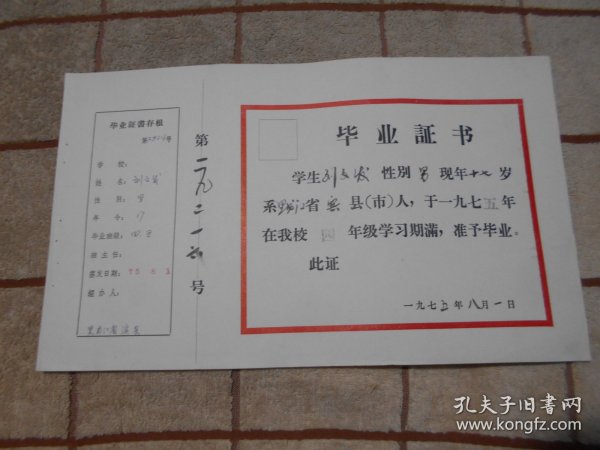 毕业証書存根
第 号
学 校：
姓 名：刘文发
性 别：男
年 令：17
毕业班级：四.
班主任：
簽发日期：75 8 1
經办人：
黑龙江省
第一九二一 号
毕业証书
学生刘文发 性别男 现年十七岁
系黑龙江省 县(市)人，于一九七五年
在我校 四 年级学习期满，准予毕业。
此证
一九七五年八月一日
孔夫子旧书网
www.kongfz.com